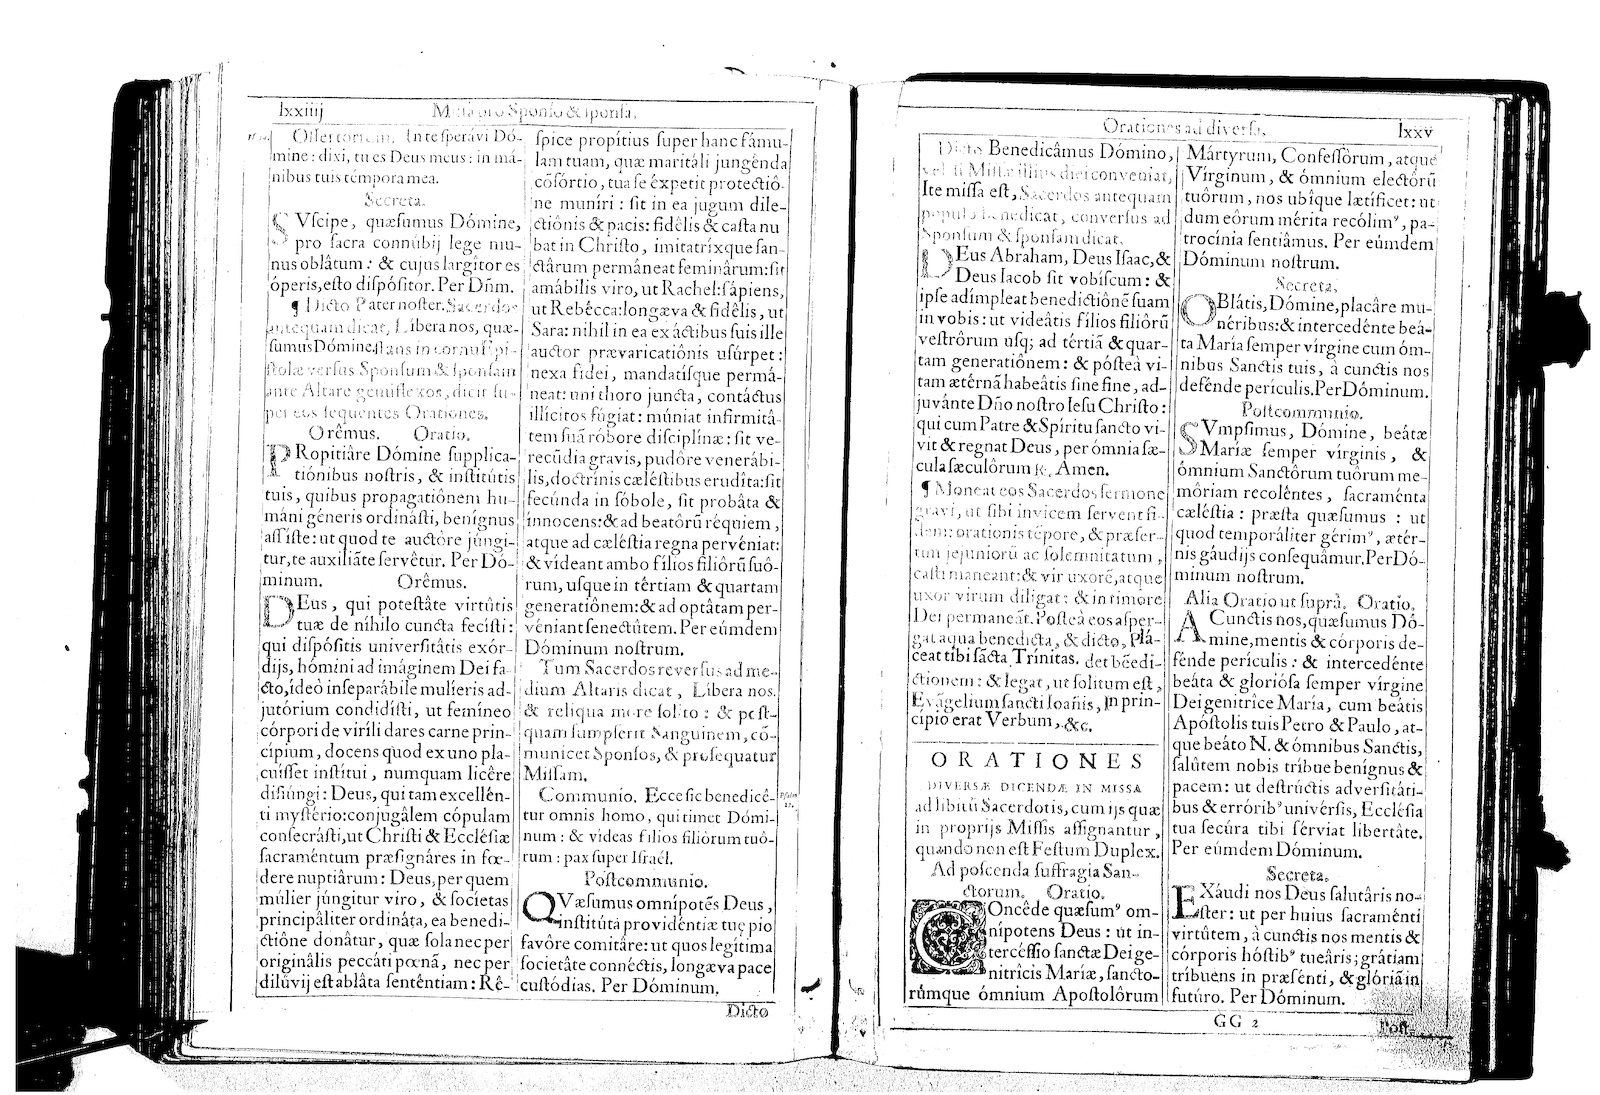 lxxiiij
Missa pro Sponso & sponsa.
Offertorium. In te sperávi Dó-
mine: dixi, tu es Deus meus: in má-
nibus tuis témpora mea.
Secreta.
SVſcipe, quæſumus Dómine,
pro ſacra connúbij lege mu-
nus oblâtum: & cujus largítor es
óperis, eſto diſpóſitor. Per Dñm.
¶ Dicto Pater noſter. Sacerdos
antequam dicat, Líbera nos, quæ-
ſumus Dómine, ſtans in cornu Epi-
ſtolæ verſus Sponſum & ſponſam
ante Altare genuflexos, dicit ſu-
per eos ſequentes Orationes.
Orêmus. Oratio.
PRopitiâre Dómine ſupplica-
tiónibus noſtris, & inſtitútis
tuis, quibus propagatiónem hu-
máni géneris ordináſti, benígnus
aſſíſte: ut quod te auctóre júngi-
tur, te auxiliãte ſervêtur. Per Dó-
minum. Orêmus.
DEus, qui poteſtâte virtûtis
tuæ de níhilo cuncta feciſti:
qui diſpóſitis univerſitâtis exór-
dijs, hómini ad imáginem Dei fa-
cto, ídeò inſeparábile mulíeris ad-
jutórium condidíſti, ut femíneo
córpori de viríli dares carne prin-
cípium, docens quod ex uno pla-
cuíſſet inſtítui, numquam licêre
diſiúngi: Deus, qui tam excellén-
ti myſtério: conjugâlem cópulam
conſecráſti, ut Chriſti & Eccléſiæ
ſacraméntum præſignáres in fœ-
dere nuptiârum: Deus, per quem
múlier júngitur viro, & ſocíetas
principâliter ordináta, ea benedi-
ctiône donâtur, quæ ſola nec per
originâlis peccáti pœnã, nec per
dilúvij eſt ablâta ſenténtiam: Rê-
ſpice propítius ſuper hanc fámu-
lam tuam, quæ maritáli jungénda
cõſórtio, tua ſe éxpetit protectiô-
ne muníri: ſit in ea jugum dile-
ctiónis & pacis: fidêlis & caſta nu
bat in Chriſto, imitatríxque ſan-
ctárum permáneat feminârum: ſit
amábilis viro, ut Rachel: ſápiens,
ut Rebécca: longæva & fidêlis, ut
Sara: nihil in ea ex áctibus ſuis ille
auctor prævaricatiônis uſúrpet:
nexa fidei, mandatíſque permá-
neat: uni thoro juncta, contáctus
illícitos fúgiat: múniat infirmitâ-
tem ſuã róbore diſciplínæ: ſit ve-
recũdia gravis, pudôre venerábi-
lis, doctrínis cæléſtibus erudîta: ſit
fecúnda in ſóbole, ſit probâta &
ínnocens: & ad beatôrũ réquiem,
atque ad cæléſtia regna pervéniat:
& vídeant ambo fílios filiôrũ ſuô-
rum, uſque in tértiam & quartam
generatiônem: & ad optâtam per-
véniant ſenectûtem. Per eúmdem
Dóminum noſtrum.
Tum Sacerdos reverſus ad me-
dium Altaris dicat, Líbera nos.
& reliqua more ſolito: & poſt-
quam ſumpſerit Sanguinem, cõ-
municet Sponſos, & proſequatur
Miſſam.
Communio. Ecce ſic benedicê-
tur omnis homo, qui timet Dómi-
num: & vídeas fílios filiôrum tuô-
rum: pax ſuper Iſraél.
Poſtcommunio.
QVæſumus omnípotẽs Deus,
inſtitûta providéntiæ tuę pio
favôre comitâre: ut quos legítima
ſocietâte connéctis, longæva pace
cuſtódias. Per Dóminum.
Dicto
Orationes ad diverſa.
lxxv
Dicto Benedicâmus Dómino,
vel ſi Miſſæ illius diei conveniat,
Ite miſſa eſt, Sacerdos antequam
populo benedicat, converſus ad
Sponſum & ſponſam dicat.
DEus Abraham, Deus Iſaac, &
Deus Iacob ſit vobíſcum: &
ipſe adímpleat benedictiônẽ ſuam
in vobis: ut videâtis fílios filiôrũ
veſtrôrum uſq; ad tértiã & quar-
tam generatiônem: & póſteà vi-
tam ætérnã habeâtis ſine fine, ad-
juvánte Dño noſtro Ieſu Chriſto:
qui cum Patre & Spíritu ſancto vi-
vit & regnat Deus, per ómnia ſæ-
cula ſæculôrum ℟. Amen.
¶ Moneat eos Sacerdos ſermone
gravi, ut ſibi invicem ſervent fi-
dem: orationis tẽpore, & præſer-
tim jejuniorũ ac ſolemnitatum,
caſti maneant: & vir uxorẽ, atque
uxor virum diligat: & in timore
Dei permaneãt. Poſteà eos aſper-
gat aqua benedicta, & dicto, Plá-
ceat tibi ſãcta Trínitas. det bẽedi-
ctionem: & legat, ut ſolitum eſt,
Evãgelium ſancti Ioañis, In prin-
cípio erat Verbum, &c.
ORATIONES
DIVERSÆ DICENDÆ IN MISSA
ad libitũ Sacerdotis, cum ijs quæ
in proprijs Miſſis aſſignantur,
quando non eſt Feſtum Duplex.
Ad poſcenda ſuffragia San-
ctorum. Oratio.
COncêde quæſumꝰ om-
nípotens Deus: út in-
tercéſſio ſanctæ Dei ge-
nitrîcis Maríæ, ſancto-
rúmque ómnium Apoſtolôrum
Mártyrum, Confeſſôrum, atque
Vírginum, & ómnium electôrũ
tuôrum, nos ubîque lætíficet: ut
dum eôrum mérita recólimꝰ, pa-
trocínia ſentiâmus. Per eúmdem
Dóminum noſtrum.
Secreta.
OBlátis, Dómine, placâre mu-
néribus: & intercedénte beá-
ta María ſemper vírgine cum óm-
nibus Sanctis tuis, à cunctis nos
defénde perículis. Per Dóminum.
Poſtcommunio.
SVmpſimus, Dómine, beátæ
Maríæ ſemper vírginis, &
ómnium Sanctôrum tuôrum me-
môriam recolêntes, ſacraménta
cæléſtia: præſta quæſumus: ut
quod temporáliter gérimꝰ, ætér-
nis gáudijs conſequâmur. Per Dó-
minum noſtrum.
Alia Oratio ut ſuprà. Oratio.
ACunctis nos, quæſumus Dó-
mine, mentis & córporis de-
fénde perículis: & intercedénte
beáta & glorióſa ſemper vírgine
Dei genitríce María, cum beátis
Apóſtolis tuis Petro & Paulo, at-
que beáto N. & ómnibus Sanctis,
ſalûtem nobis tríbue benígnus &
pacem: ut deſtrúctis adverſitâti-
bus & erróribꝰ univérſis, Eccléſia
tua ſecúra tibi ſérviat libertâte.
Per eúmdem Dóminum.
Secreta.
EXáudi nos Deus ſalutâris no-
ſter: ut per huius ſacraménti
virtûtem, à cunctis nos mentis &
córporis hóſtibꝰ tueâris; grátiam
tríbuens in præſénti, & glóriã in
futúro. Per Dóminum.
GG 2
Poſt-